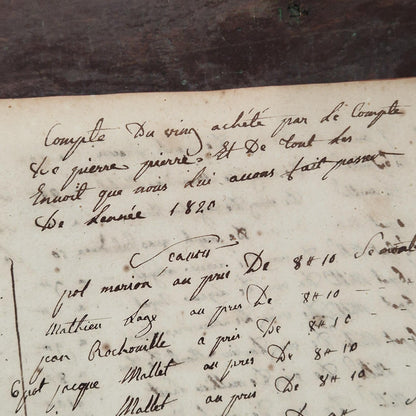 Compte Du ving achété par Lé Compte
De pierre pierre. Et De tout Les
Envoit que nous Lui avons fait passer
De Lannée 1820
Scavoir
pol marion au pris De 8# 10
Mathieu Lage au pris De 8# 10
jean Rochouille a pris De 8# 10
6 pot jacque Mallet au pris De 8# 10
Mallet au pris De 8# 10